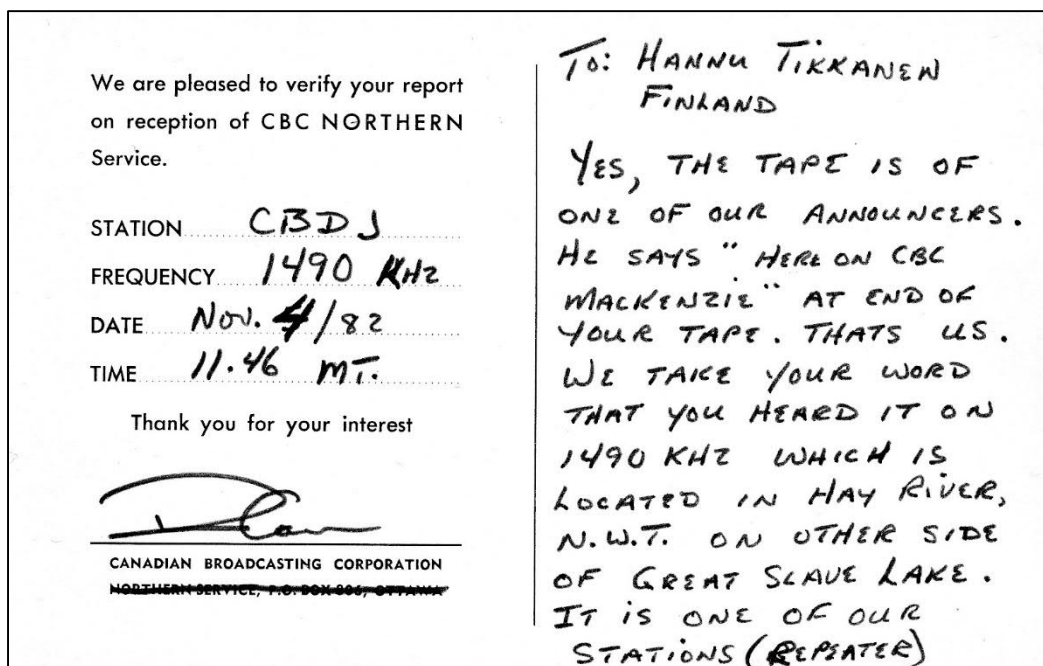 We are pleased to verify your report
on reception of CBC NORTHERN
Service.
STATION CBDJ
FREQUENCY 1490 KHZ
DATE NOV. 4/82
TIME 11.46 MT.
Thank you for your interest
CANADIAN BROADCASTING CORPORATION
NORTHERN SERVICE, P.O. BOX 806, OTTAWA
TO: HANNU TIKKANEN
FINLAND
YES, THE TAPE IS OF
ONE OF OUR ANNOUNCERS.
HE SAYS "HERE ON CBC
MACKENZIE" AT END OF
YOUR TAPE. THATS US.
WE TAKE YOUR WORD
THAT YOU HEARD IT ON
1490 KHZ WHICH IS
LOCATED IN HAY RIVER,
N.W.T. ON OTHER SIDE
OF GREAT SLAVE LAKE.
IT IS ONE OF OUR
STATIONS (REPEATER)